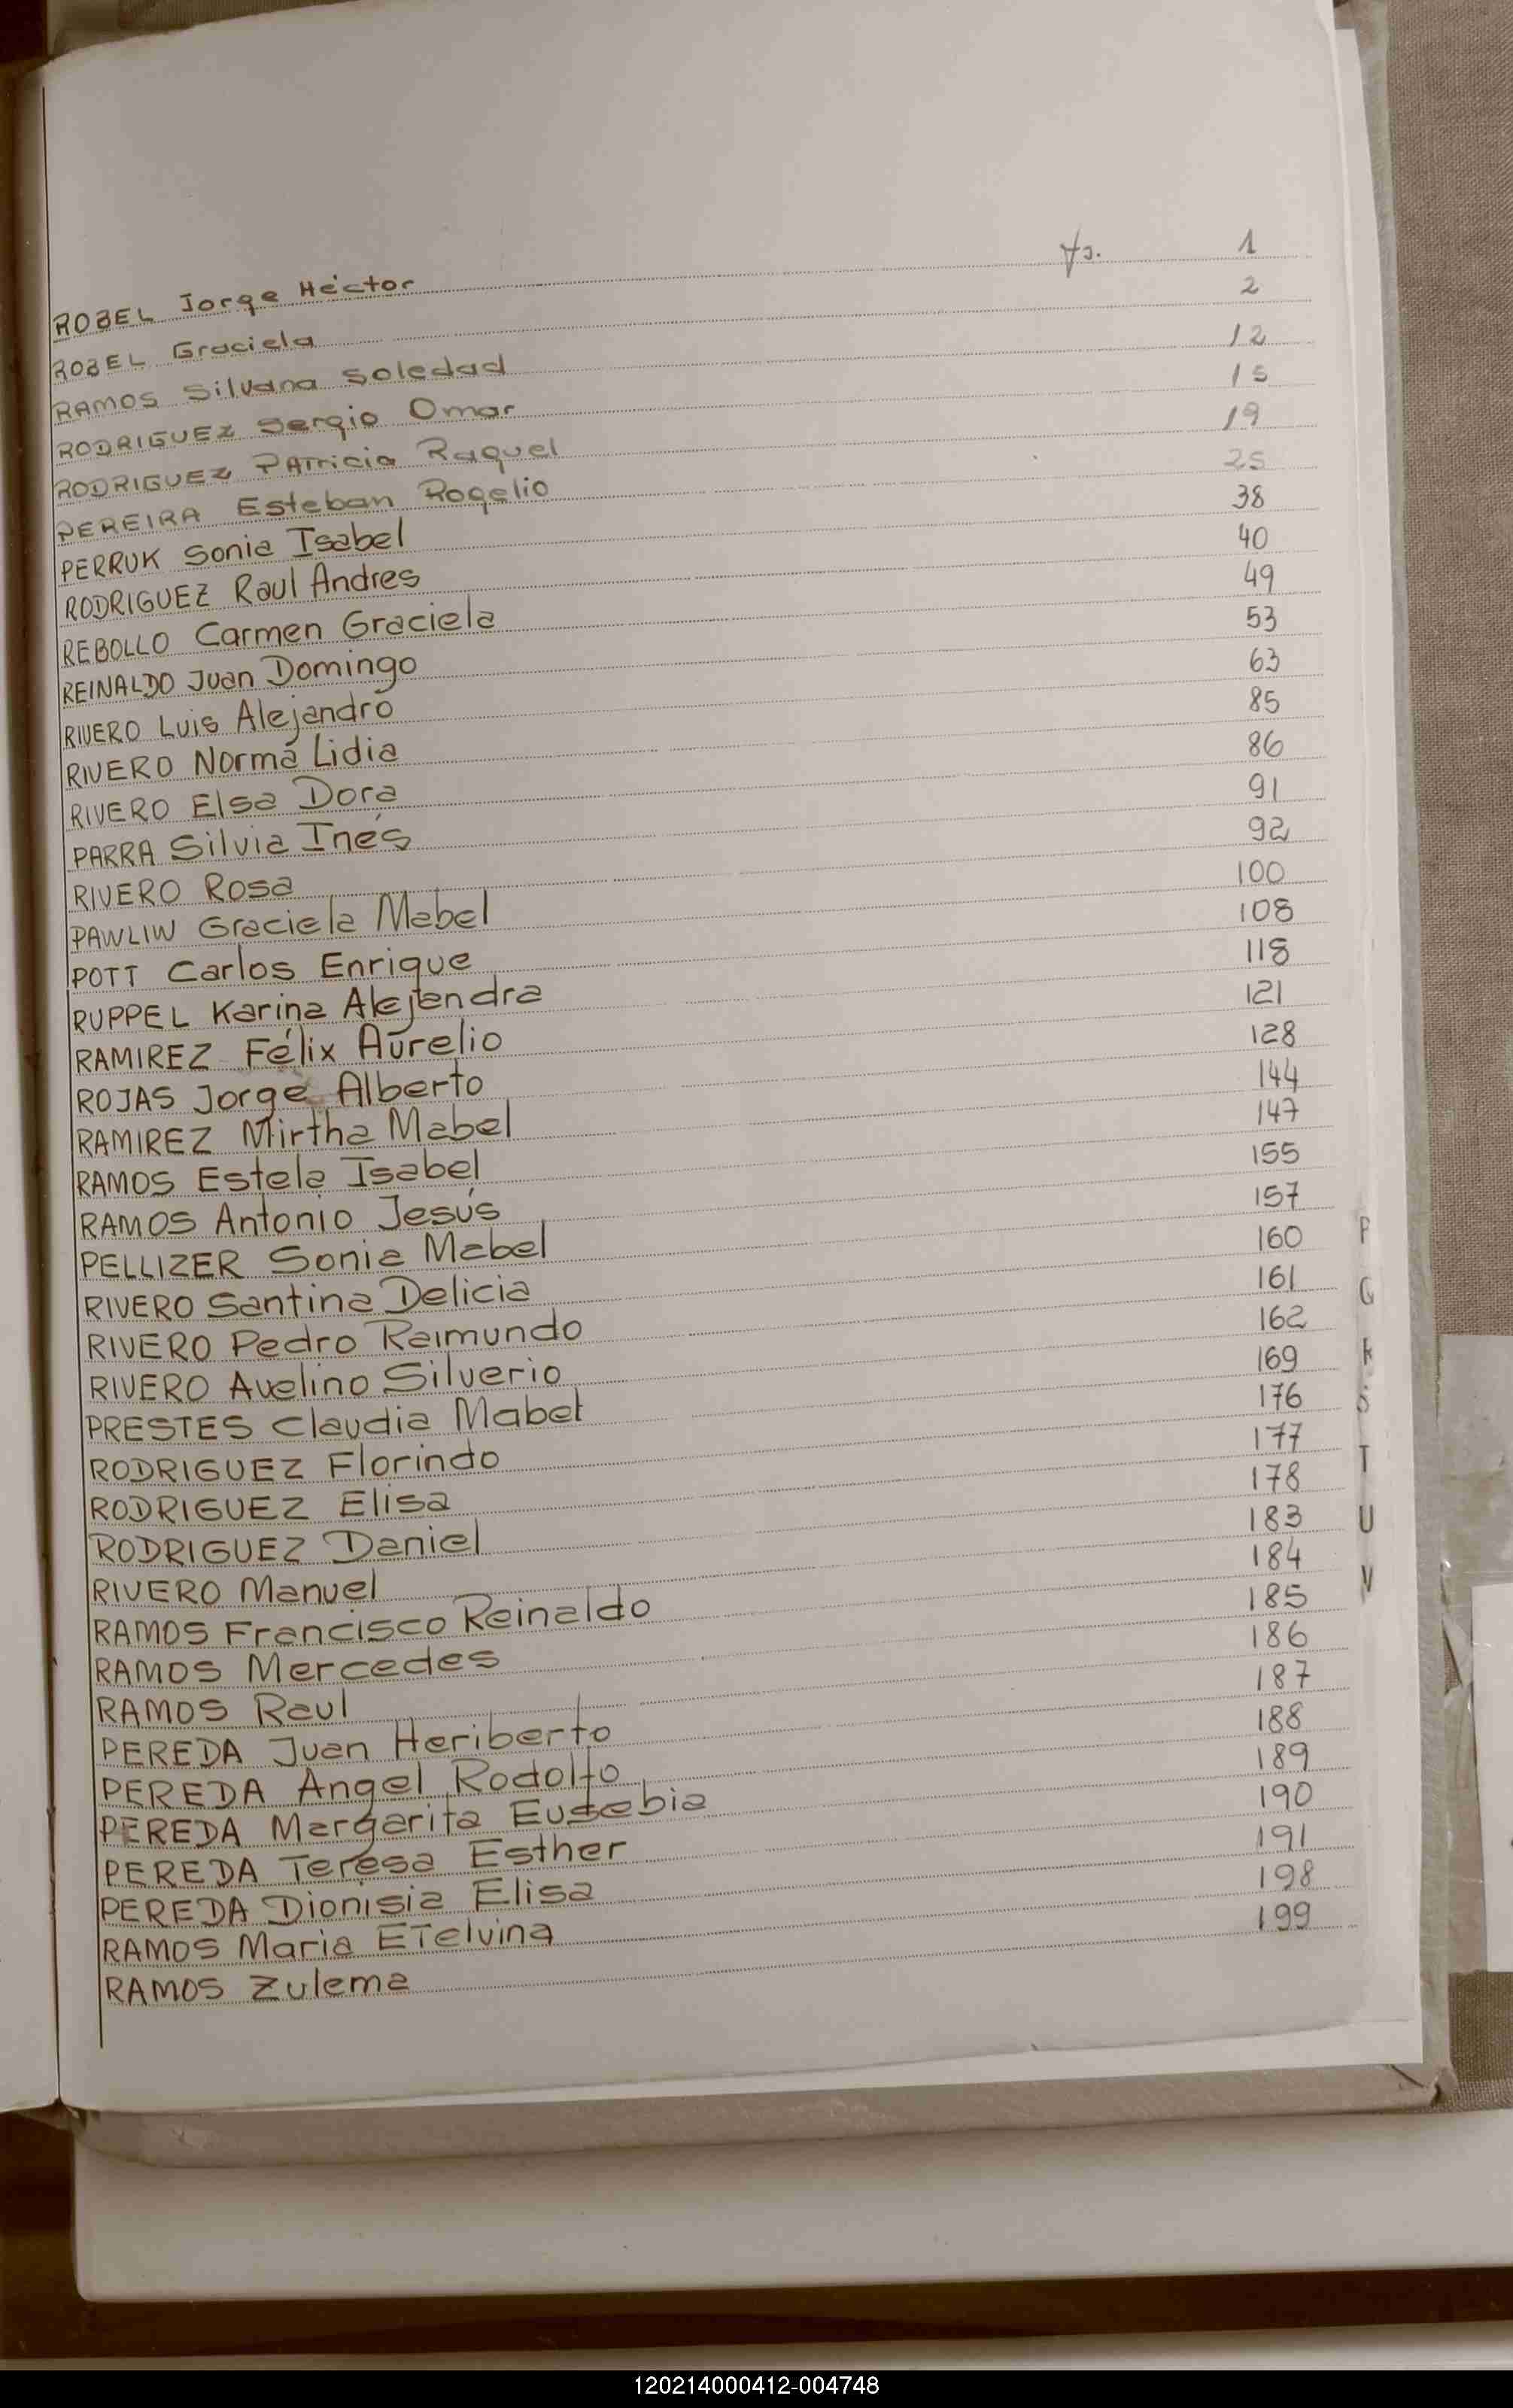 ROBEL Jorge Héctor fs. 1
ROBEL Graciela 2
RAMOS Silvana Soledad 12
RODRIGUEZ Sergio Omar 15
RODRIGUEZ Patricia Raquel 19
PEREIRA Esteban Rogelio 25
PERRUK Sonia Isabel 38
RODRIGUEZ Raul Andres 40
REBOLLO Carmen Graciela 49
REINALDO Juan Domingo 53
RIVERO Luis Alejandro 63
RIVERO Norma Lidia 85
RIVERO Elsa Dora 86
PARRA Silvia Inés 91
RIVERO Rosa 92
PAWLIW Graciela Mabel 100
POTT Carlos Enrique 108
RUPPEL Karina Alejandra 118
RAMIREZ Félix Aurelio 121
ROJAS Jorge Alberto 128
RAMIREZ Mirtha Mabel 144
RAMOS Estela Isabel 147
RAMOS Antonio Jesús 155
PELLIZER Sonia Mabel 157
RIVERO Santina Delicia 160
RIVERO Pedro Raimundo 161
RIVERO Avelino Silverio 162
PRESTES Claudia Mabel 169
RODRIGUEZ Florindo 176
RODRIGUEZ Elisa 177
RODRIGUEZ Daniel 178
RIVERO Manuel 183
RAMOS Francisco Reinaldo 184
RAMOS Mercedes 185
RAMOS Raul 186
PEREDA Juan Heriberto 187
PEREDA Angel Rodolfo 188
PEREDA Margarita Eusebia 189
PEREDA Teresa Esther 190
PEREDA Dionisia Elisa 191
RAMOS Maria Etelvina 198
RAMOS Zulema 199
P
S
T
U
V
120214000412-004748